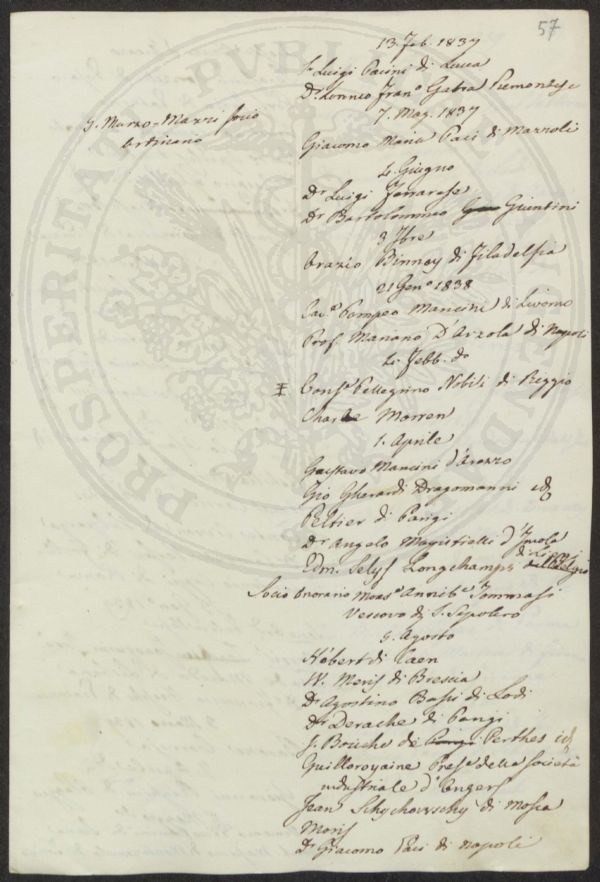 57
13. Feb. 1837
Sr. Luigi Pacini di Lucca
Dr. Lorenzo Frano. Gatta Piemontese
7. Mag. 1837
G. Marzo-Mazzi socio
ordinario
Giacomo Maria Paci di
4. Giugno
Dr. Luigi Ferrarese
Dr. Bartolommeo Giuntini
3 Xbre
Orazio Binney di Filadelfia
21 Geno. 1838
Cavo. Pompeo Mancini di Livorno
Prof. Mariano D'Arzola di Napoli
4. Febb. do
Conse. Pellegrino Nobili di Reggio
Charle Morren
1. Aprile
Gaestavo Mancini d'Arezzo
Gio Gherardi Dragomanni id
Peltier di Parigi
Dr. Angelo Magistretti d'Imola
Edm. Selys Longchamps di Liegi
Socio Onorario Monse. Annibe. Tommasi
Vescovo di S. Sepolcro
5. Agosto
Hébert di Caen
W. Meris di Brescia
Dr. Agostino Bassi di Lodi
Dr. Derache di Parigi
J. Bouche de Perthes id
Guilloroyaine Prese. della Società
industriale d'Angers
Jean Schychowschy di Mosca
Moris
Dr. Giacomo Paci di Napoli
PROSPERITATI PVBLICAE AVGENDAE